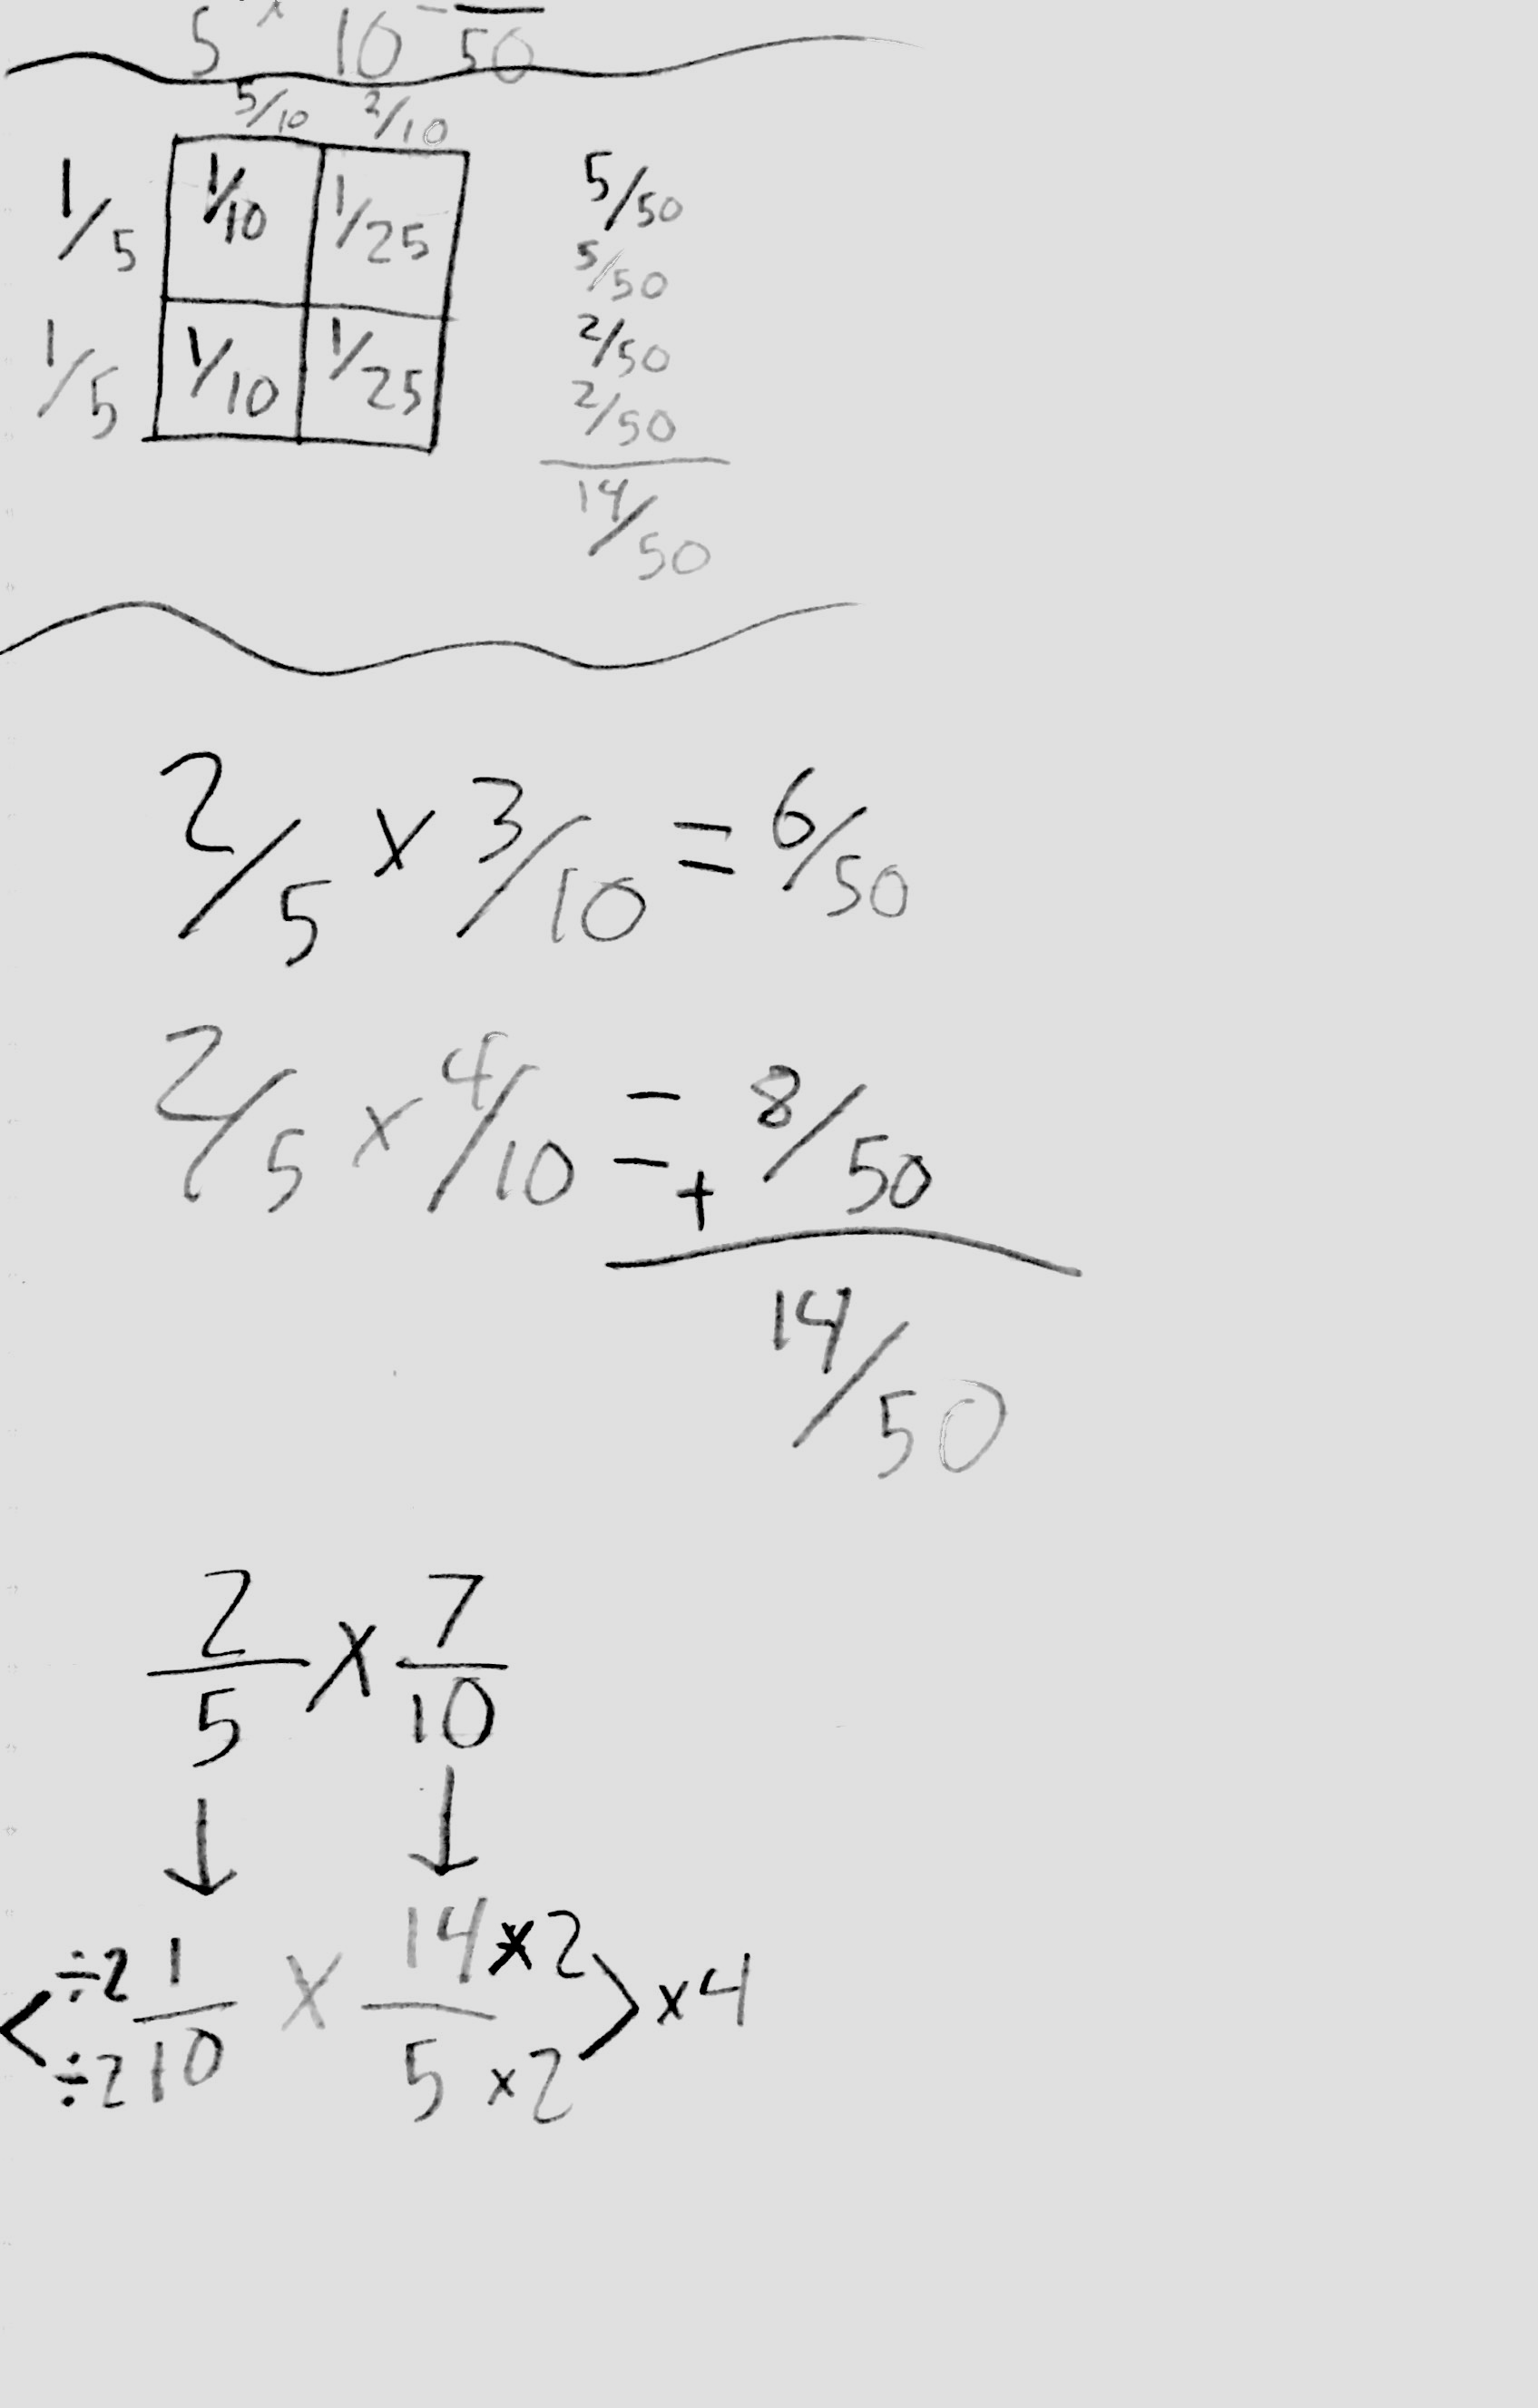 5 x 10 = 50
5/10 2/10
1/5 1/10 1/25
1/5 1/10 1/25
5/50
5/50
2/50
2/50
14/50
2/5 x 3/10 = 6/50
2/5 x 4/10 = + 8/50
14/50
2/5 x 7/10
↓ ↓
< ÷2 1 x 14 x2 > x4
÷2 10 5 x2